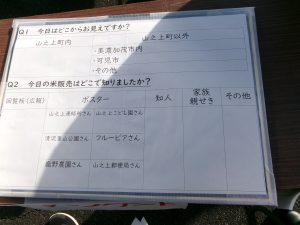 Q1 今日はどこからお見えですか?
山之上町内 山之上町以外
・美濃加茂市内
・可児市
・その他
Q2 今日の米販売はどこで知りましたか?
回覧板(広報) ポスター 知人 家族 親せき その他
山之上連絡所さん 山之上こども園さん
フルーピアさん
鹿野農園さん 山之上郵便局さん